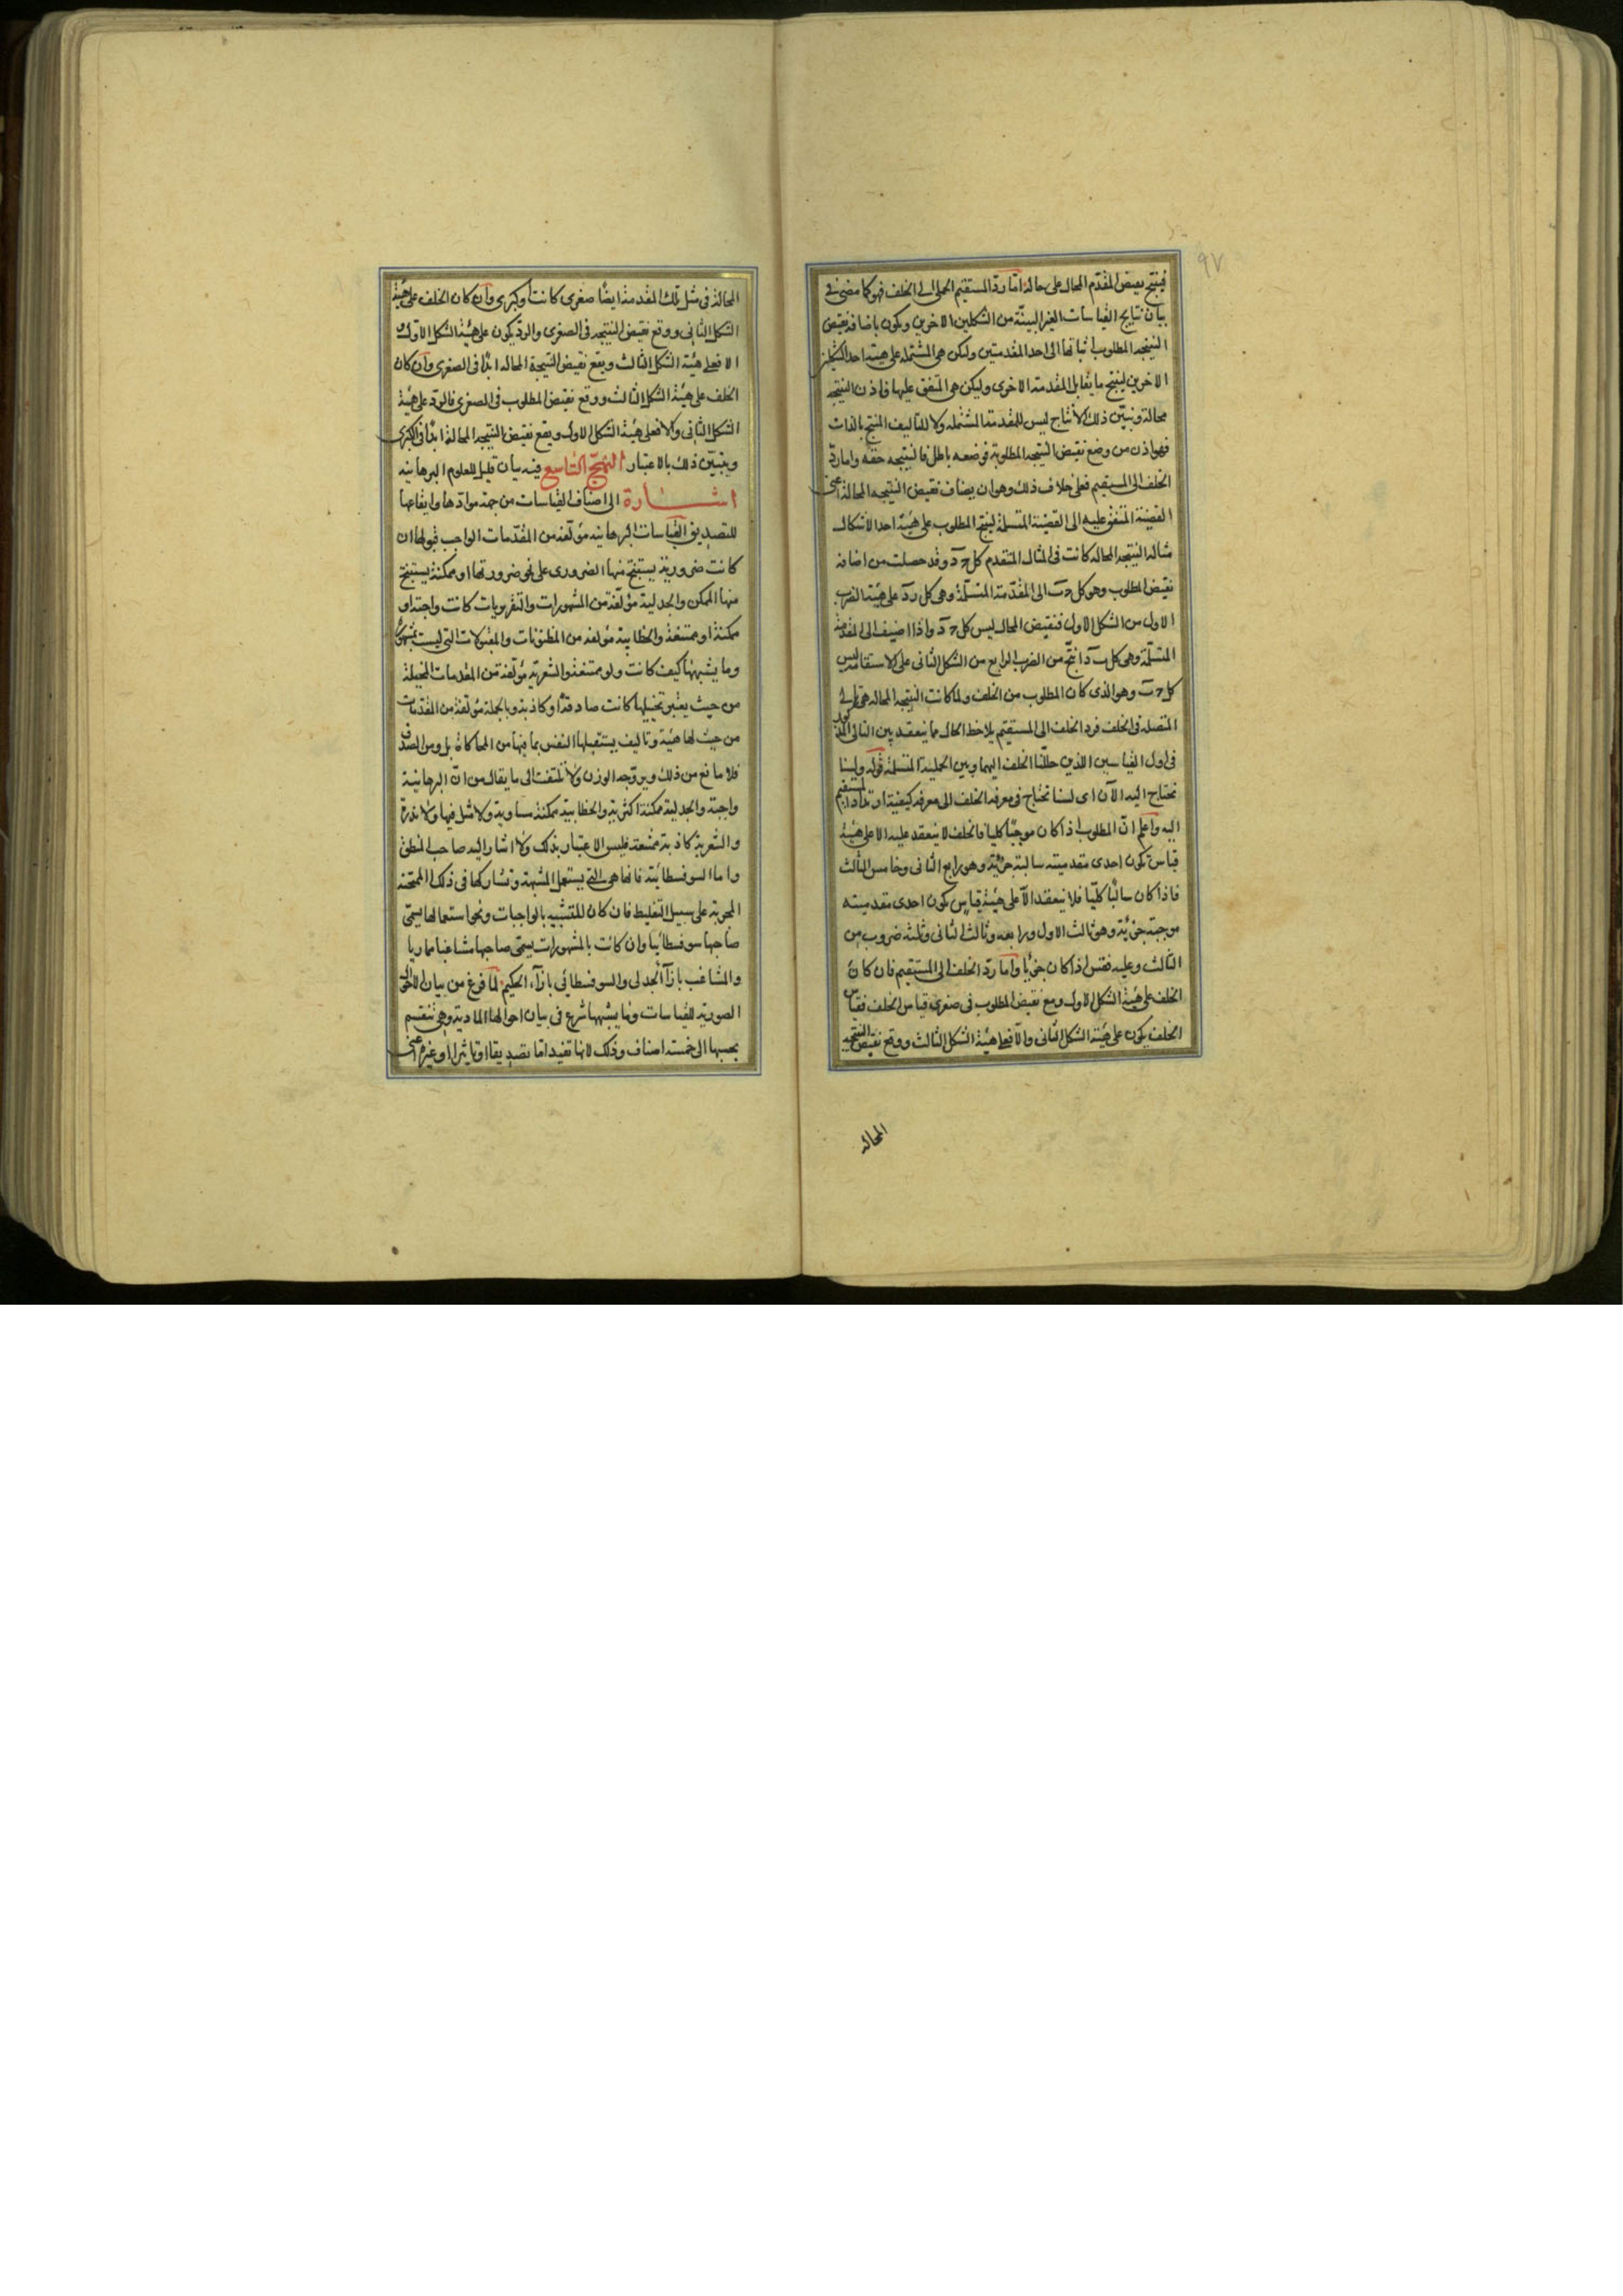 ٩٧
فينتج نقيض المقدم المحال على حاله اما رد المستقيم الحملى الى الخلف فهو كما مضى فى
بيان نتايج القياسات الغير البينة من الشكلين الاخرين ويكون باضافة نقيض
النتيجه المطلوب اثباتها الى احد المقدمتين ولكن هى المشتمله على هيئة احد الشكلين
الاخرين لينتج ما يقابل المقدمة الاخرى وليكن هى المتفق عليها فاذن النتيجه
محالة ونبيّن ذلك لانتاج ليس للمقدمة المشتمله ولا للتأليف المنتج بالذات
فهو اذن من وضع نقيض النتيجه المطلوبة فوضعه باطل فالنتيجه حقه واما ردّ
الخلف الى المستقيم فعلى خلاف ذلك وهو ان يضاف نقيض النتيجه المحالة اعنى
القضية المتفق عليه الى القضية المتسلمة لينتج المطلوب على هيئة احد الاشكال
مثاله النتيجه المحاله كانت فى المثال المتقدم كل ج د وقد حصلت من اضافه
نقيض المطلوب وهو كل ج ب الى المقدمة المتسلمة وهى كل ب د على هيئة الضرب
الاول من الشكل الاول فنقيض المحال ليس كل ج د واذا اضيف الى المقدمة
المتسلمة وهى كل ب د انتج من الضرب الرابع من الشكل الثانى على الاستقامة ليس
كل ج ب وهو الذى كان المطلوب من الخلف ولما كانت النتيجه المحاله هى تالى
المتصلة فى الخلف فرد الخلف الى المستقيم يلاحظ الحال مما ينعقد بين التالى المذكور
فى اول القياسين اللذين حللنا الخلف اليهما وبين الحملية المتسلمة قوله ولسنا
نحتاج اليه الآن اى لسنا نحتاج فى معرفه الخلف الى معرفه كيفية ارتداد المستقيم
اليه واعلم انّ المطلوب اذا كان موجبًا كليا فالخلف لا ينعقد عليه الا على هيئة
قياس تكون احدى مقدمتيه سالبة جزئية وهو رابع الثانى وخامس الثالث
فاذا كان سالبًا كليّا فلا ينعقد الّا على هيئة قياس تكون احدى مقدمتيه
موجبة جزئية وهو ثالث الاول ورابعه وثالث الثانى وثلثه ضروب من
الثالث وعليه فقس اذا كان جزئيا واما ردّ الخلف الى المستقيم فان كان
الخلف على هيئة الشكل الاول ووقع نقيض المطلوب فى صغرى قياس الخلف فقياس
الخلف يكون على هيئة الشكل الثانى والّا فعلى هيئة الشكل الثالث ووقع نقيض النتيجه
المحاله
المحالة فى مثل تلك المقدمة ايضًا صغرى كانت او كبرى وان كان الخلف على هيئة
الشكل الثانى ووقع نقيض النتيجه فى الصغرى والرد يكون على هيئة الشكل الاول و
الا فعلى هيئة الشكل الثالث ويقع نقيض النتيجة المحاله ابدًا فى الصغرى وان كان
الخلف على هيئة الشكل الثالث ووقع نقيض المطلوب فى الصغرى فالرد على هيئة
الشكل الثانى والا فعلى هيئة الشكل الاول ويقع نقيض النتيجه المحالة ابدًا فى الكبرى
ويتبيّن ذلك بالاعتبار النهج التاسع فيه بيان قليل للعلوم البرهانيه
اشارة الى اصناف القياسات من جهة موادها وايقاعها
للتصديق القياسات البرهانيه مؤلفه من المقدّمات الواجب قبولها ان
كانت ضرورية يستنتج منها الضرورى على نحو ضرورتها او ممكنة يستنتج
منها الممكن والجدلية مؤلّفة من المشهورات والتقريريات كانت واجبة او
ممكنة او ممتنعة والخطابية مؤلفه من المظنونات والمقبولات التى ليست بمشهورة
وما يشبهها كيف كانت ولو ممتنعة والشعرية مؤلّفة من المقدمات المخيلة
من حيث يعتبر تخييلها كانت صادقة او كاذبة وبالجملة مؤلفة من المقدمات
من حيث لها هيئة وتاليف يستقبلها النفس بما فيها من المحاكاة بل ومن الصدق
فلا مانع من ذلك ويروّجه الوزن ولا تلتفت الى ما يقال من انّ البرهانية
واجبة والجدلية ممكنة اكثرية والخطابية ممكنة مساوية ولا مثل فيها ولا ندرة
والشعرية كاذبة ممتنعة فليس الاعتبار بذلك ولا اشار اليه صاحب المنطق
واما السوفسطائية فانها هى التى يستعمل المشبهة وتشاركها فى ذلك الممتحنه
المجربة على سبيل التغليط فان كان للتشبيه بالواجبات ونحو استعمالها يسمّى
صاحبها سوفسطائيا وان كانت بالمشهورات يسمّى صاحبها مشاغبا مماريا
والمشاغب بازآء الجدلى والسوفسطائى بازآء الحكيم لما فرغ من بيان الاحوال
الصورية للقياسات وما يشبهها شرع فى بيان احوالها المادية وهى تنقسم
بحسبها الى خمسة اصناف وذلك لانها تفيد اما تصديقا او تاثيرا او غيره اعنى